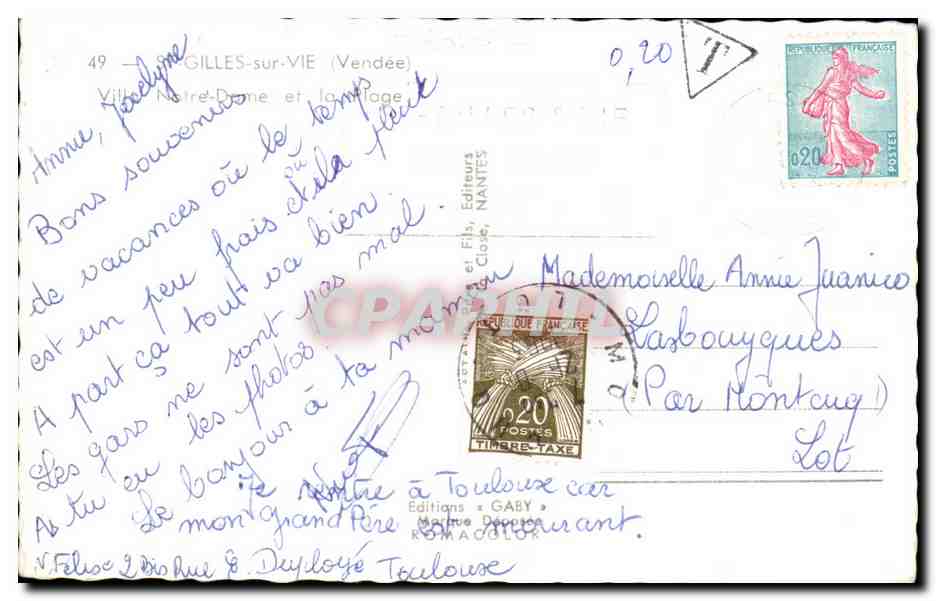 49 - GILLES-sur-VIE (Vendée)
Villa Notre-Dame et la plage
0,20
T
REPUBLIQUE FRANÇAISE
0,20
POSTES
Annie, Jocelyne
Bons souvenirs
de vacances où le temps
est un peu frais et où la pleut
A part ça tout va bien.
Les gars ne sont pas mal
As tu eu les photos.
Le bonjour à ta maman
Je rentre à Toulouse car
mon grand Père est mourant.
V. Felise 2 Bis Rue E. Duployé Toulouse
Mademoiselle Annie Juanico
Lasbouygues
(Par Montcuq)
Lot
et Fils, Editeurs
Close, NANTES
REPUBLIQUE FRANÇAISE
0,20
POSTES
TIMBRE-TAXE
Editions « GABY »
Marque Déposée
ROMACOLOR
CPARPHIL